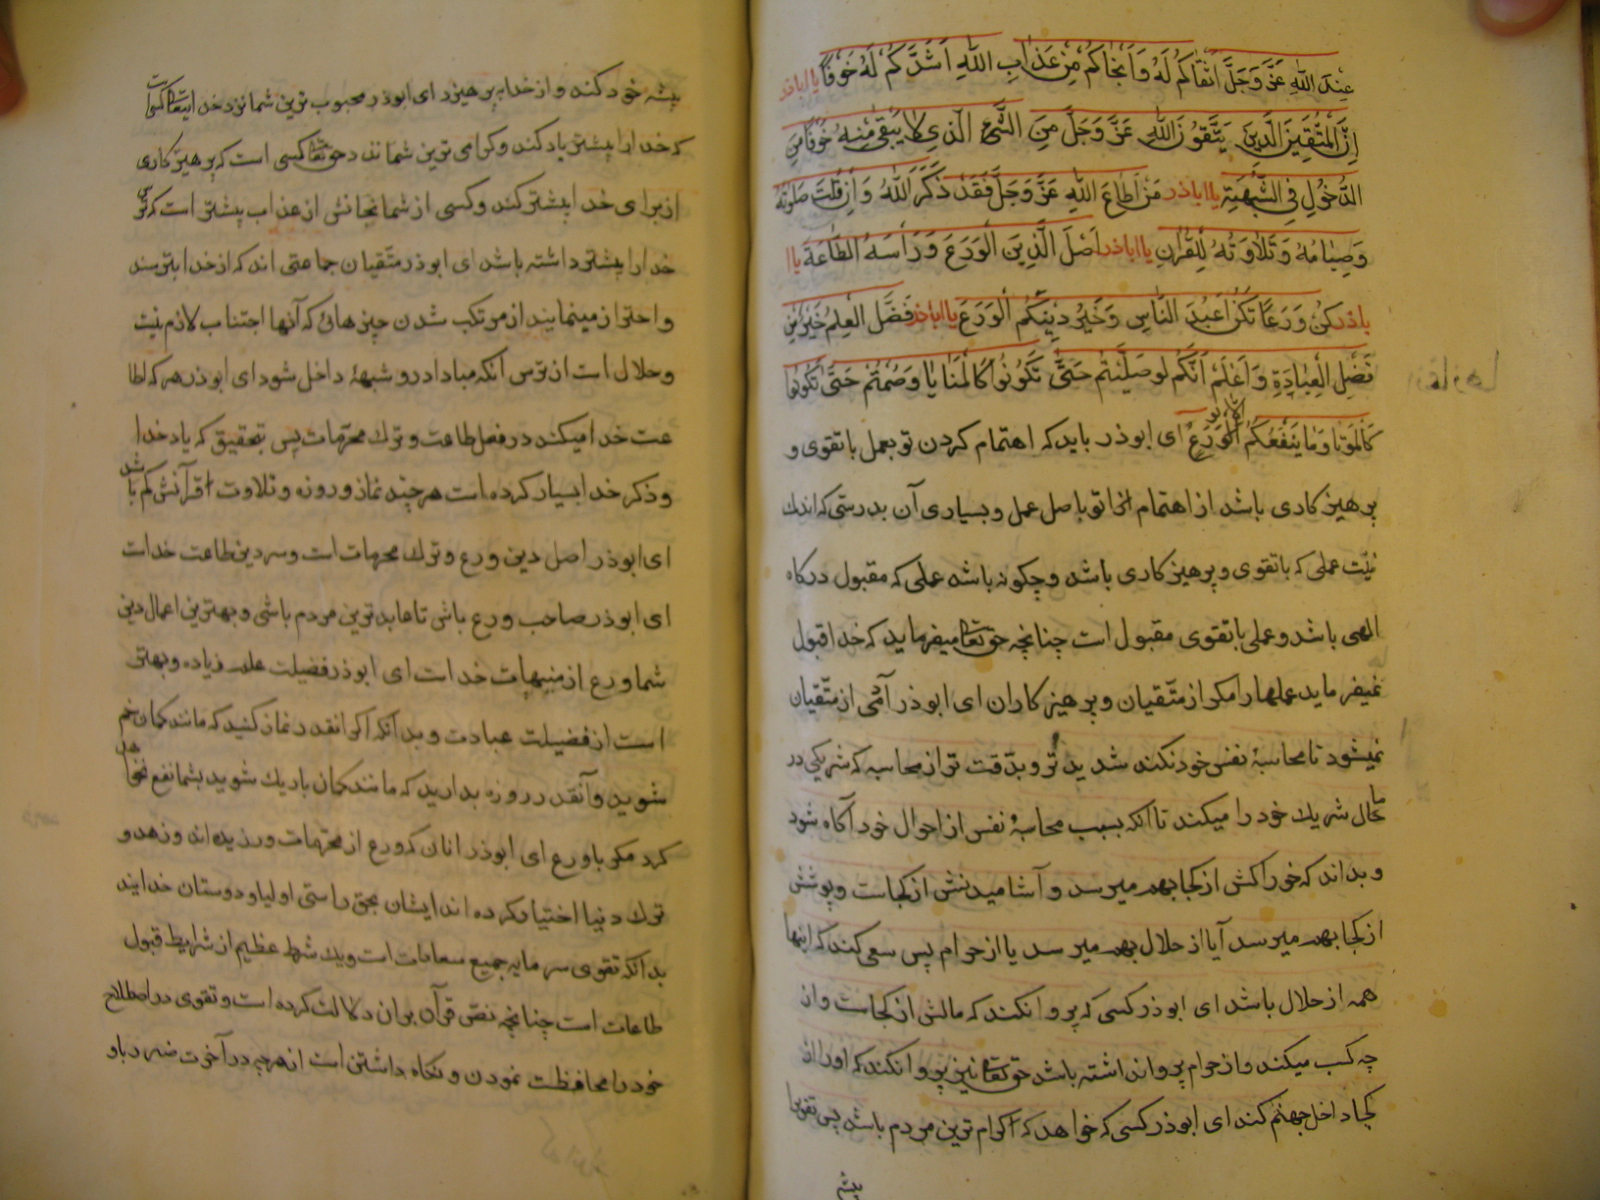 عِنْدَ اللهِ عَزَّ وَجَلَّ اَتْقَاكُمْ لَهُ وَاَنْجَاكُمْ مِنْ عَذَابِ اللهِ اَشَدُّكُمْ لَهُ خَوْفًا يا اباذر
اِنَّ الْمُتَّقِينَ الَّذِينَ يَتَّقُونَ اللهَ عَزَّ وَجَلَّ مِنَ الشَّيْءِ الَّذِي لَا يُتَّقَى مِنْهُ خَوْفًا مِنَ
الدُّخُولِ فِي الشُّبْهَةِ يا اباذر مَنْ اَطَاعَ اللهَ عَزَّ وَجَلَّ فَقَدْ ذَكَرَ اللهَ وَاِنْ قَلَّتْ صَلوتُهُ
وَصِيَامُهُ وَتَلَاوَتُهُ لِلْقُرْاٰنِ يا اباذر اَصْلُ الدِّينِ الْوَرَعُ وَرَأْسُهُ الطَّاعَةُ يا ا
باذر كُنْ وَرَعًا تَكُنْ اَعْبَدَ النَّاسِ وَخَيْرُ دِينِكُمُ الْوَرَعُ يا اباذر فَضْلُ الْعِلْمِ خَيْرٌ مِنْ
فَضْلِ الْعِبَادَةِ وَاعْلَمْ اَنَّكُمْ لَوْ صَلَّيْتُمْ حَتَّى تَكُونُوا كَالْحَنَايَا وَصُمْتُمْ حَتَّى تَكُونُوا
كَالْاَوْتَارِ مَا يَنْفَعُكُمْ اِلَّا بِوَرَعٍ ای ابوذر باید که اهتمام کردن تو بعمل با تقوی و
پرهیزکاری باشد از اهتمام تو باصل عمل و بسیاری آن بدرستی که اندک
نیست عملی که با تقوی و پرهیزکاری باشد و چکونه باشد عملی که مقبول درکاه
الهی باشد و عملی با تقوی مقبول است چنانچه حق تعالی میفرماید که خدا قبول
نمیفرماید عملها را مکر از متّقیان و پرهیزکاران ای ابوذر آدمی از متّقیان
نمیشود تا محاسبۀ نفس خود نکند شدیدتر و بدقت تر از محاسبه که شریکی در
حال شریک خود را میکند تا آنکه بسبب محاسبۀ نفس از احوال خود آکاه شود
و بداند که خوراکش از کجا بهم میرسد و آشامیدنش از کجاست و پوشش
از کجا بهم میرسد آیا از حلال بهم میرسد یا از حرام پس سعی کند که اینها
همه از حلال باشد ای ابوذر کسی که پروا نکند که مالش از کجاست و از
چه کسب میکند و از حرام پروا نداشته باشد حق تعالی نیز پروا نکند که او را از
کجا داخل جهنّم کند ای ابوذر کسی که خواهد که اکرام ترین مردم باشد پس تقوی را
پیشه
پیشه خود کند و از خدا بپرهیزد ای ابوذر محبوب ترین شما نزد خدایتعالی کسی است
که خدا را بیشتر یاد کند و کرامی ترین شما نزد حق تعالی کسی است که پرهیزکاری
از برای خدا بیشتر کند و کسی از شما نجاتش از عذاب بیشتر است که ترس
خدا را بیشتر داشته باشد ای ابوذر متّقیان جماعتی اند که از خدا بترسند
و احتراز مینمایند از مرتکب شدن چیزهائی که آنها اجتناب لازم نیست
و حلال است از ترس آنکه مبادا در و شبهۀ داخل شود ای ابوذر هر که اطا
عت خدا میکند در فعل طاعت و ترک محرّمات پس بتحقیق که یاد خدا
و ذکر خدا بسیار کرده است هر چند نماز و روزه و تلاوت قرآنش کم باشد
ای ابوذر اصل دین ورع و ترک محرمات است و سر دین طاعت خداست
ای ابوذر صاحب ورع باش تا عابدترین مردم باشی و بهترین اعمال دین
شما ورع از منهیات خداست ای ابوذر فضیلت علم زیاده و بهتر
است از فضیلت عبادت و بدانکه اکر آنقدر نماز کنید که مانند کمان خم
شوید و آنقدر روزه بدارید که مانند کمان باریک شوید بشما نفع نخواهد
کرد مکر با ورع ای ابوذر آنان که ورع از محرّمات ورزیده اند و زهد و
ترک دنیا اختیار کرده اند ایشان بحق و راستی اولیا و دوستان خدایند
بدانکه تقوی سرمایه جمیع سعادات است و یک شرط عظیم از شرایط قبول
طاعات است چنانچه نصّ قرآن بر آن دلالت کرده است و تقوی در اصطلاح
خود را محافظت نمودن و نکاه داشتن است از هرچه در آخرت ضرر باو